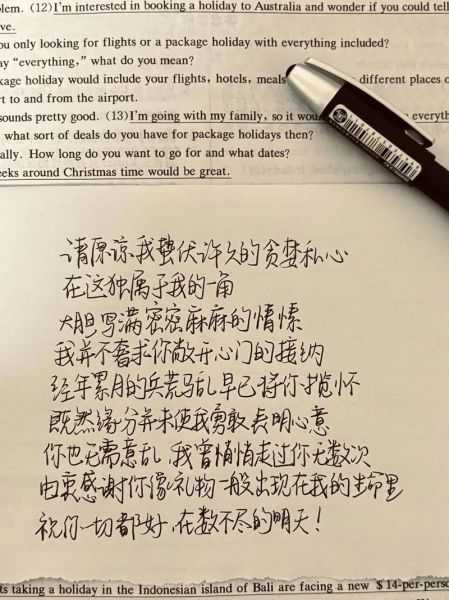 olem. (12)I'm interested in booking a holiday to Australia and wonder if you could tell
ve.
ou only looking for flights or a package holiday with everything included?
ay "everything," what do you mean?
kage holiday would include your flights, hotels, meals different places o
rt to and from the airport.
sounds pretty good. (13)I'm going with my family, so it wou everyth
what sort of deals do you have for package holidays then?
ally. How long do you want to go for and what dates?
eeks around Christmas time would be great.
请原谅我蛰伏许久的贪婪私心
在这独属于我的一角
大胆写满密密麻麻的情愫
我并不奢求你敞开心门的接纳
经年累月的兵荒马乱早已将你揽怀
既然缘分并未使我勇敢表明心意
你也无需意乱,我曾悄悄走过你无数次
由衷感谢你像礼物一般出现在我的生命里
祝你一切都好,在数不尽的明天!
ts taking a holiday in the Indonesian island of Bali are facing a new $14-per-perso